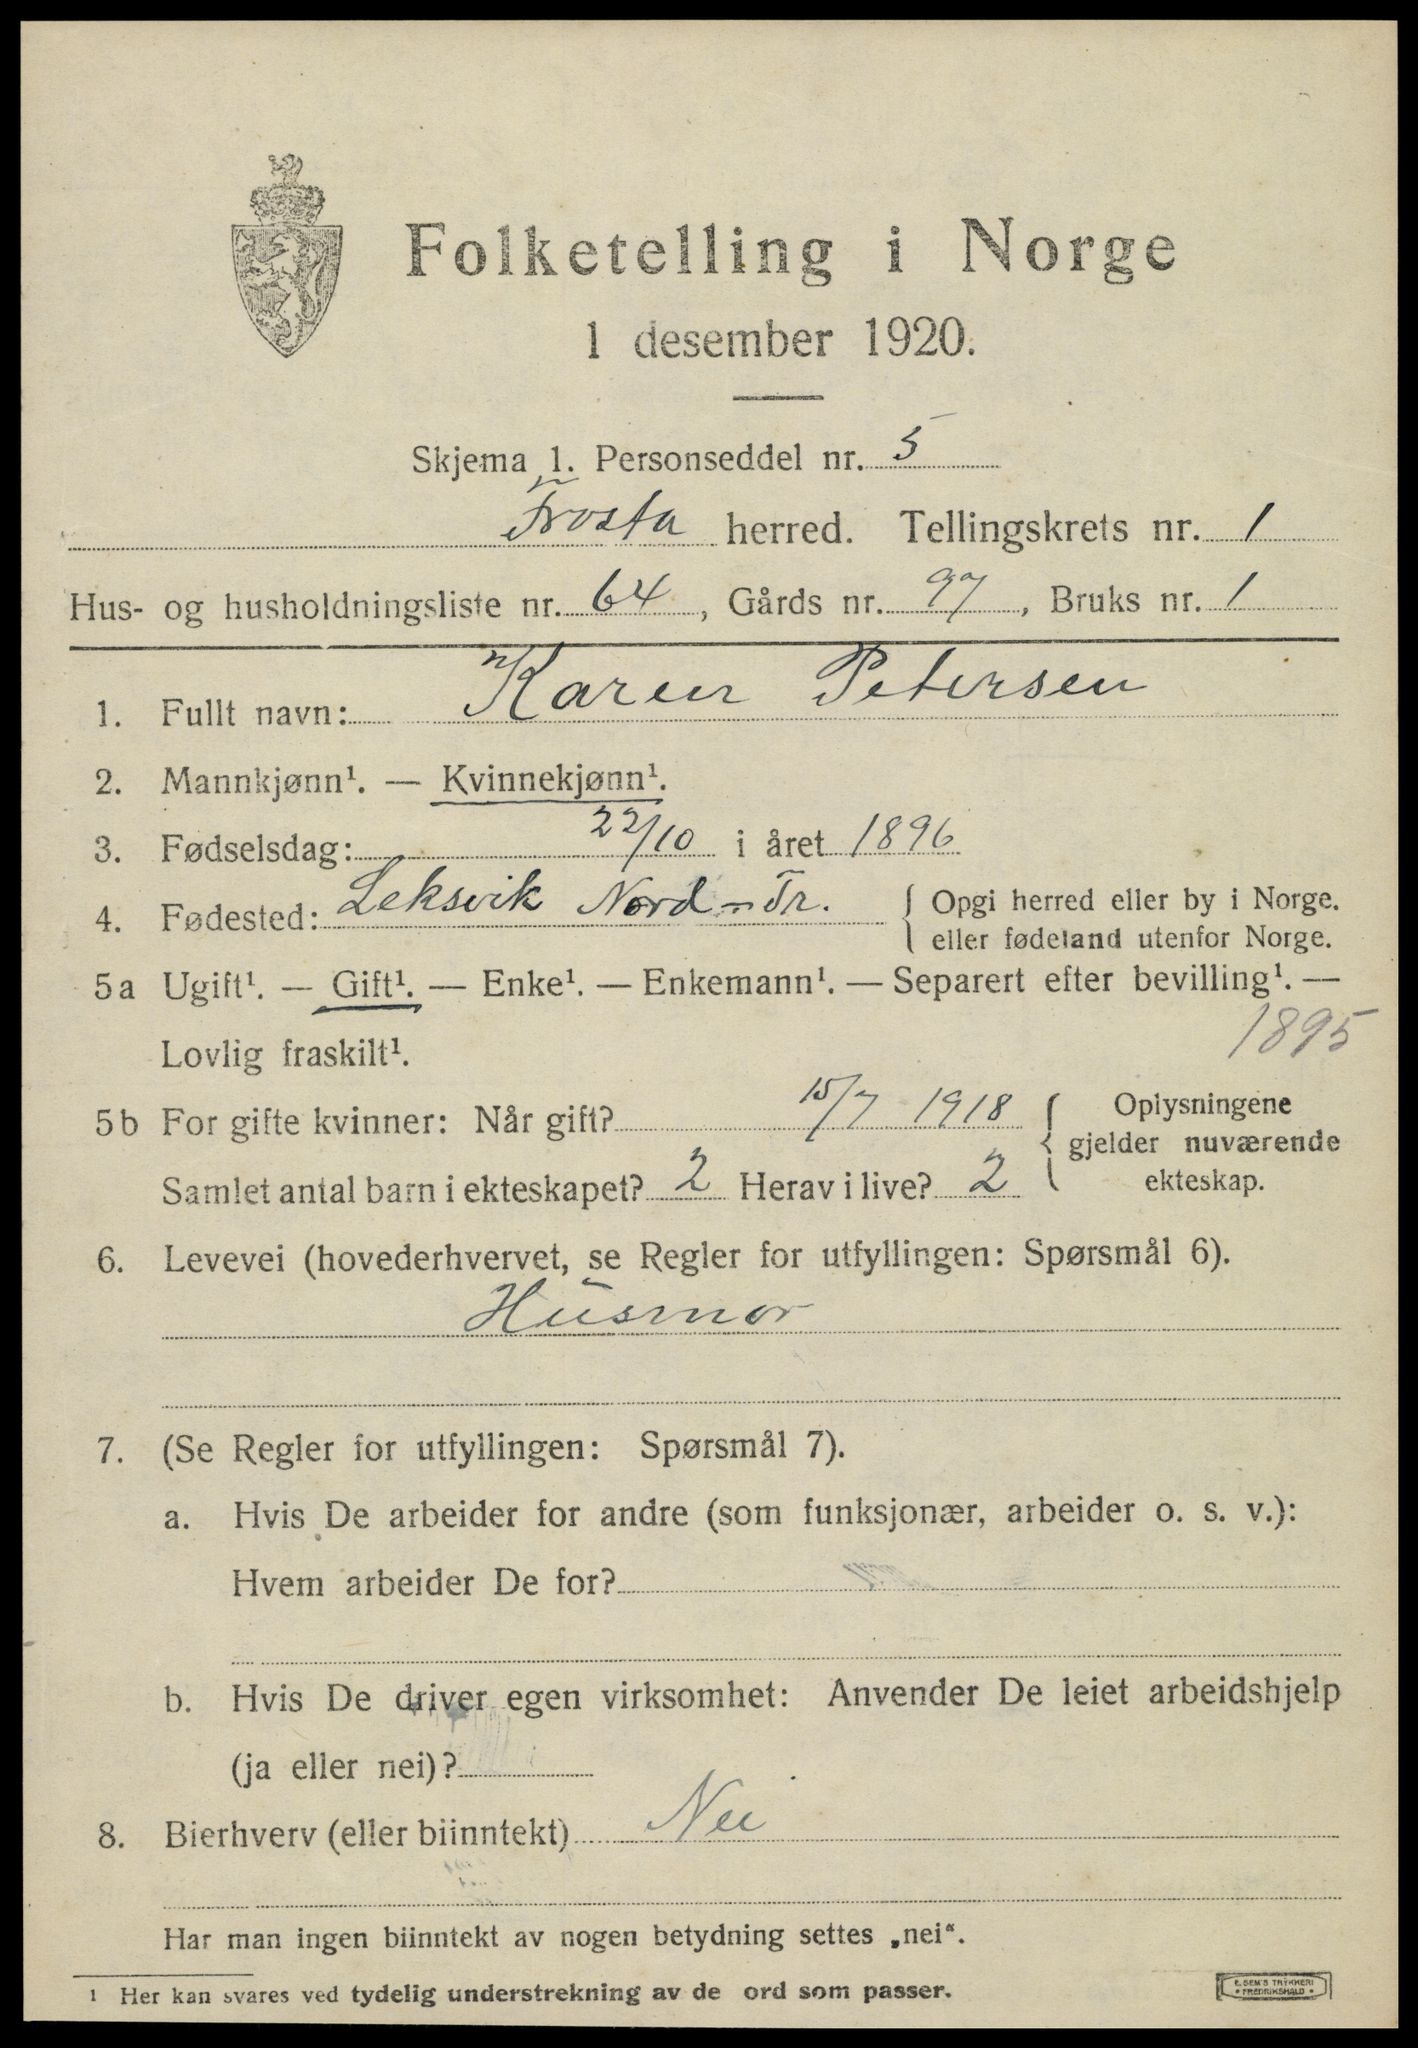 Folketelling i Norge
1 desember 1920.
Skjema 1. Personseddel nr. 5
Frosta herred. Tellingskrets nr. 1
Hus- og husholdningsliste nr. 64, Gårds nr. 97, Bruks nr. 1
1. Fullt navn: Karen Petersen
2. Mannkjønn¹. — Kvinnekjønn¹.
3. Fødselsdag: 22/10 i året 1896
4. Fødested: Leksvik Nord-Tr. { Opgi herred eller by i Norge.
eller fødeland utenfor Norge.
5a Ugift¹. — Gift¹. — Enke¹. — Enkemann¹. — Separert efter bevilling¹. —
Lovlig fraskilt¹.
1895
5b For gifte kvinner: Når gift? 15/7 1918 { Oplysningene
gjelder nuværende
Samlet antal barn i ekteskapet? 2 Herav i live? 2 ekteskap.
6. Levevei (hovederhvervet, se Regler for utfyllingen: Spørsmål 6).
Husmor
7. (Se Regler for utfyllingen: Spørsmål 7).
a. Hvis De arbeider for andre (som funksjonær, arbeider o. s. v.):
Hvem arbeider De for?
b. Hvis De driver egen virksomhet: Anvender De leiet arbeidshjelp
(ja eller nei)?
8. Bierhverv (eller biinntekt) Nei
Har man ingen biinntekt av nogen betydning settes „nei“.
1 Her kan svares ved tydelig understrekning av de ord som passer.
E. SEM'S TRYKKERI
• FREDRIKSHALD •